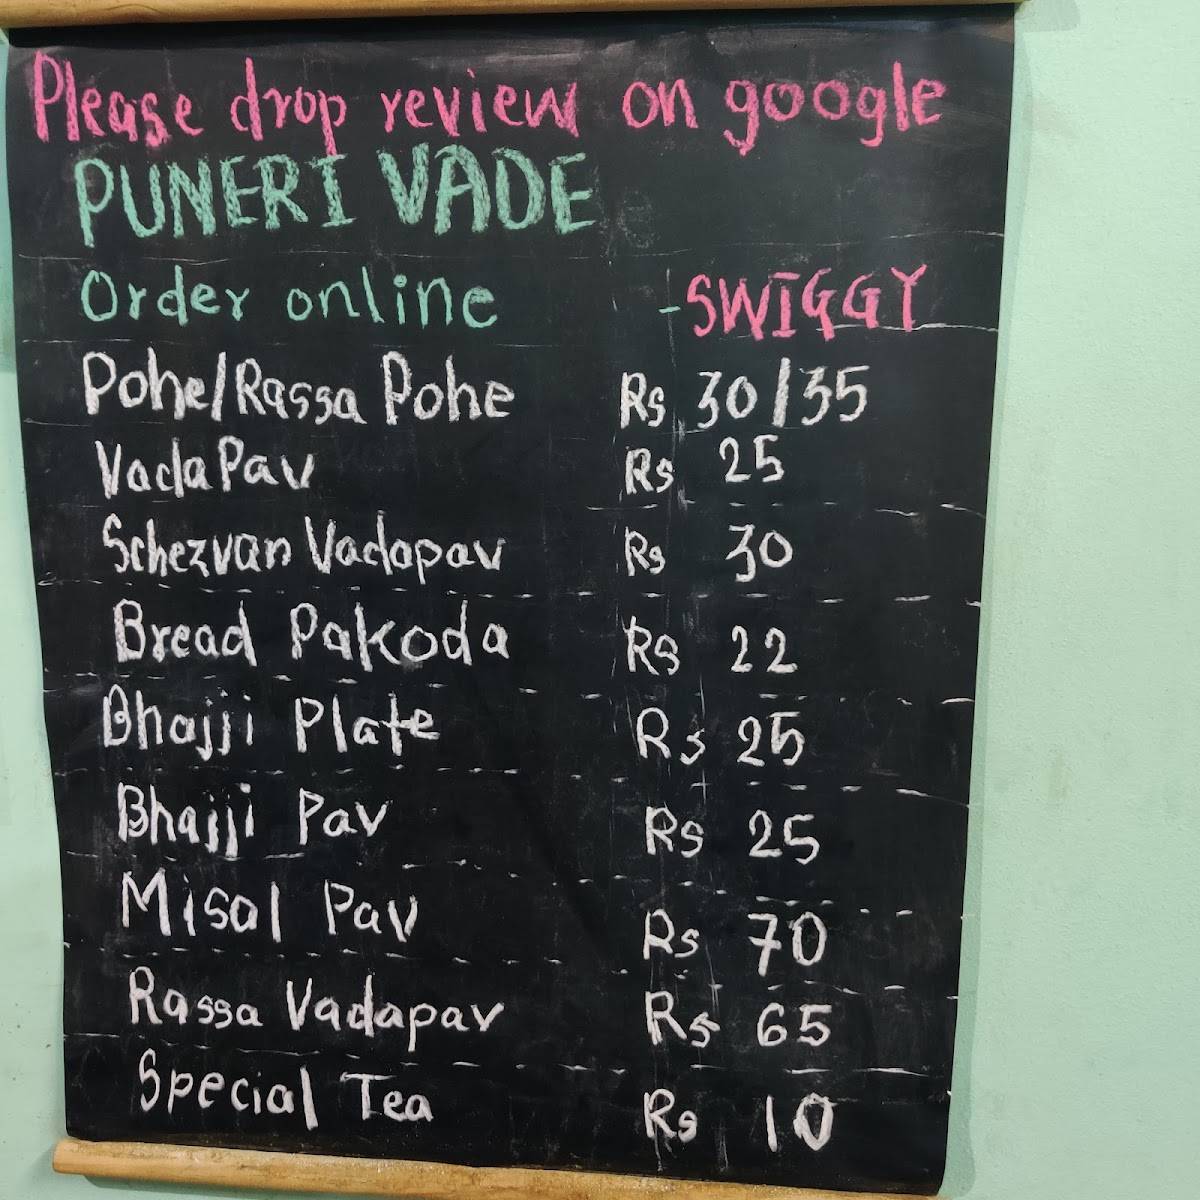 Please drop review on google
PUNERI VADE
Order online -SWIGGY
Pohe/Rassa Pohe Rs 30/35
VadaPav Rs 25
Schezvan Vadapav Rs 30
Bread Pakoda Rs 22
Bhajji Plate Rs 25
Bhajji Pav Rs 25
Misal Pav Rs 70
Rassa Vadapav Rs 65
Special Tea Rs 10